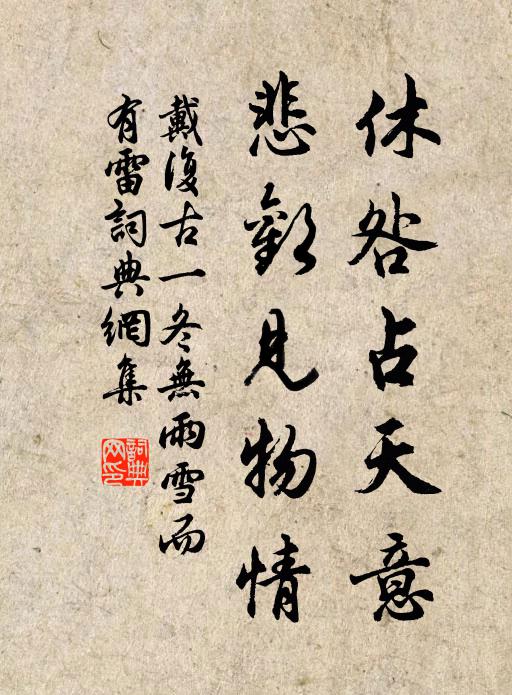 休咎占天意
悲歡見物情
戴復古一冬無雨雪而
有雷詞典網集
詞典網印